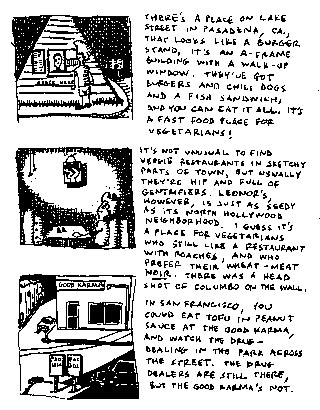 THERE'S A PLACE ON LAKE
STREET IN PASADENA, CA.,
THAT LOOKS LIKE A BURGER
STAND, IT'S AN A-FRAME
BUILDING WITH A WALK-UP
WINDOW. THEY'VE GOT
BURGERS AND CHILI DOGS
AND A FISH SANDWICH,
AND YOU CAN EAT IT ALL. IT'S
A FAST FOOD PLACE FOR
VEGETARIANS!
IT'S NOT UNUSUAL TO FIND
VEGGIE RESTAURANTS IN SKETCHY
PARTS OF TOWN, BUT USUALLY
THEY'RE HIP AND FULL OF
GENTRIFIERS. LEONOR'S,
HOWEVER, IS JUST AS SEEDY
AS ITS NORTH HOLLYWOOD
NEIGHBORHOOD. I GUESS IT'S
A PLACE FOR VEGETARIANS
WHO STILL LIKE A RESTAURANT
WITH ROACHES, AND WHO
PREFER THEIR WHEAT-MEAT
NOIR. THERE WAS A HEAD
SHOT OF COLUMBO ON THE WALL.
GOOD KARMA
IN SAN FRANCISCO, YOU
COULD EAT TOFU IN PEANUT
SAUCE AT THE GOOD KARMA,
AND WATCH THE DRUG-
DEALING IN THE PARK ACROSS
THE STREET. THE DRUG
DEALERS ARE STILL THERE,
BUT THE GOOD KARMA'S NOT.